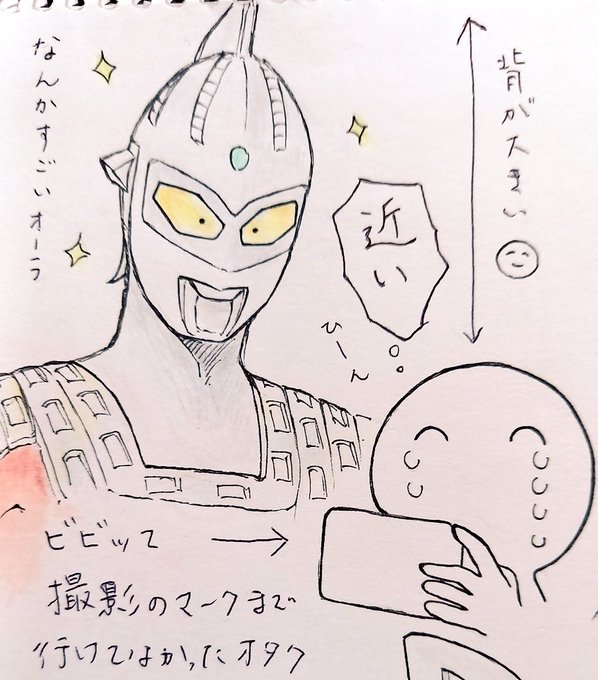 背が大きい
近い
ひーん
なんかすごいオーラ
ビビッて
撮影のマークまで
行けてなかったオタク